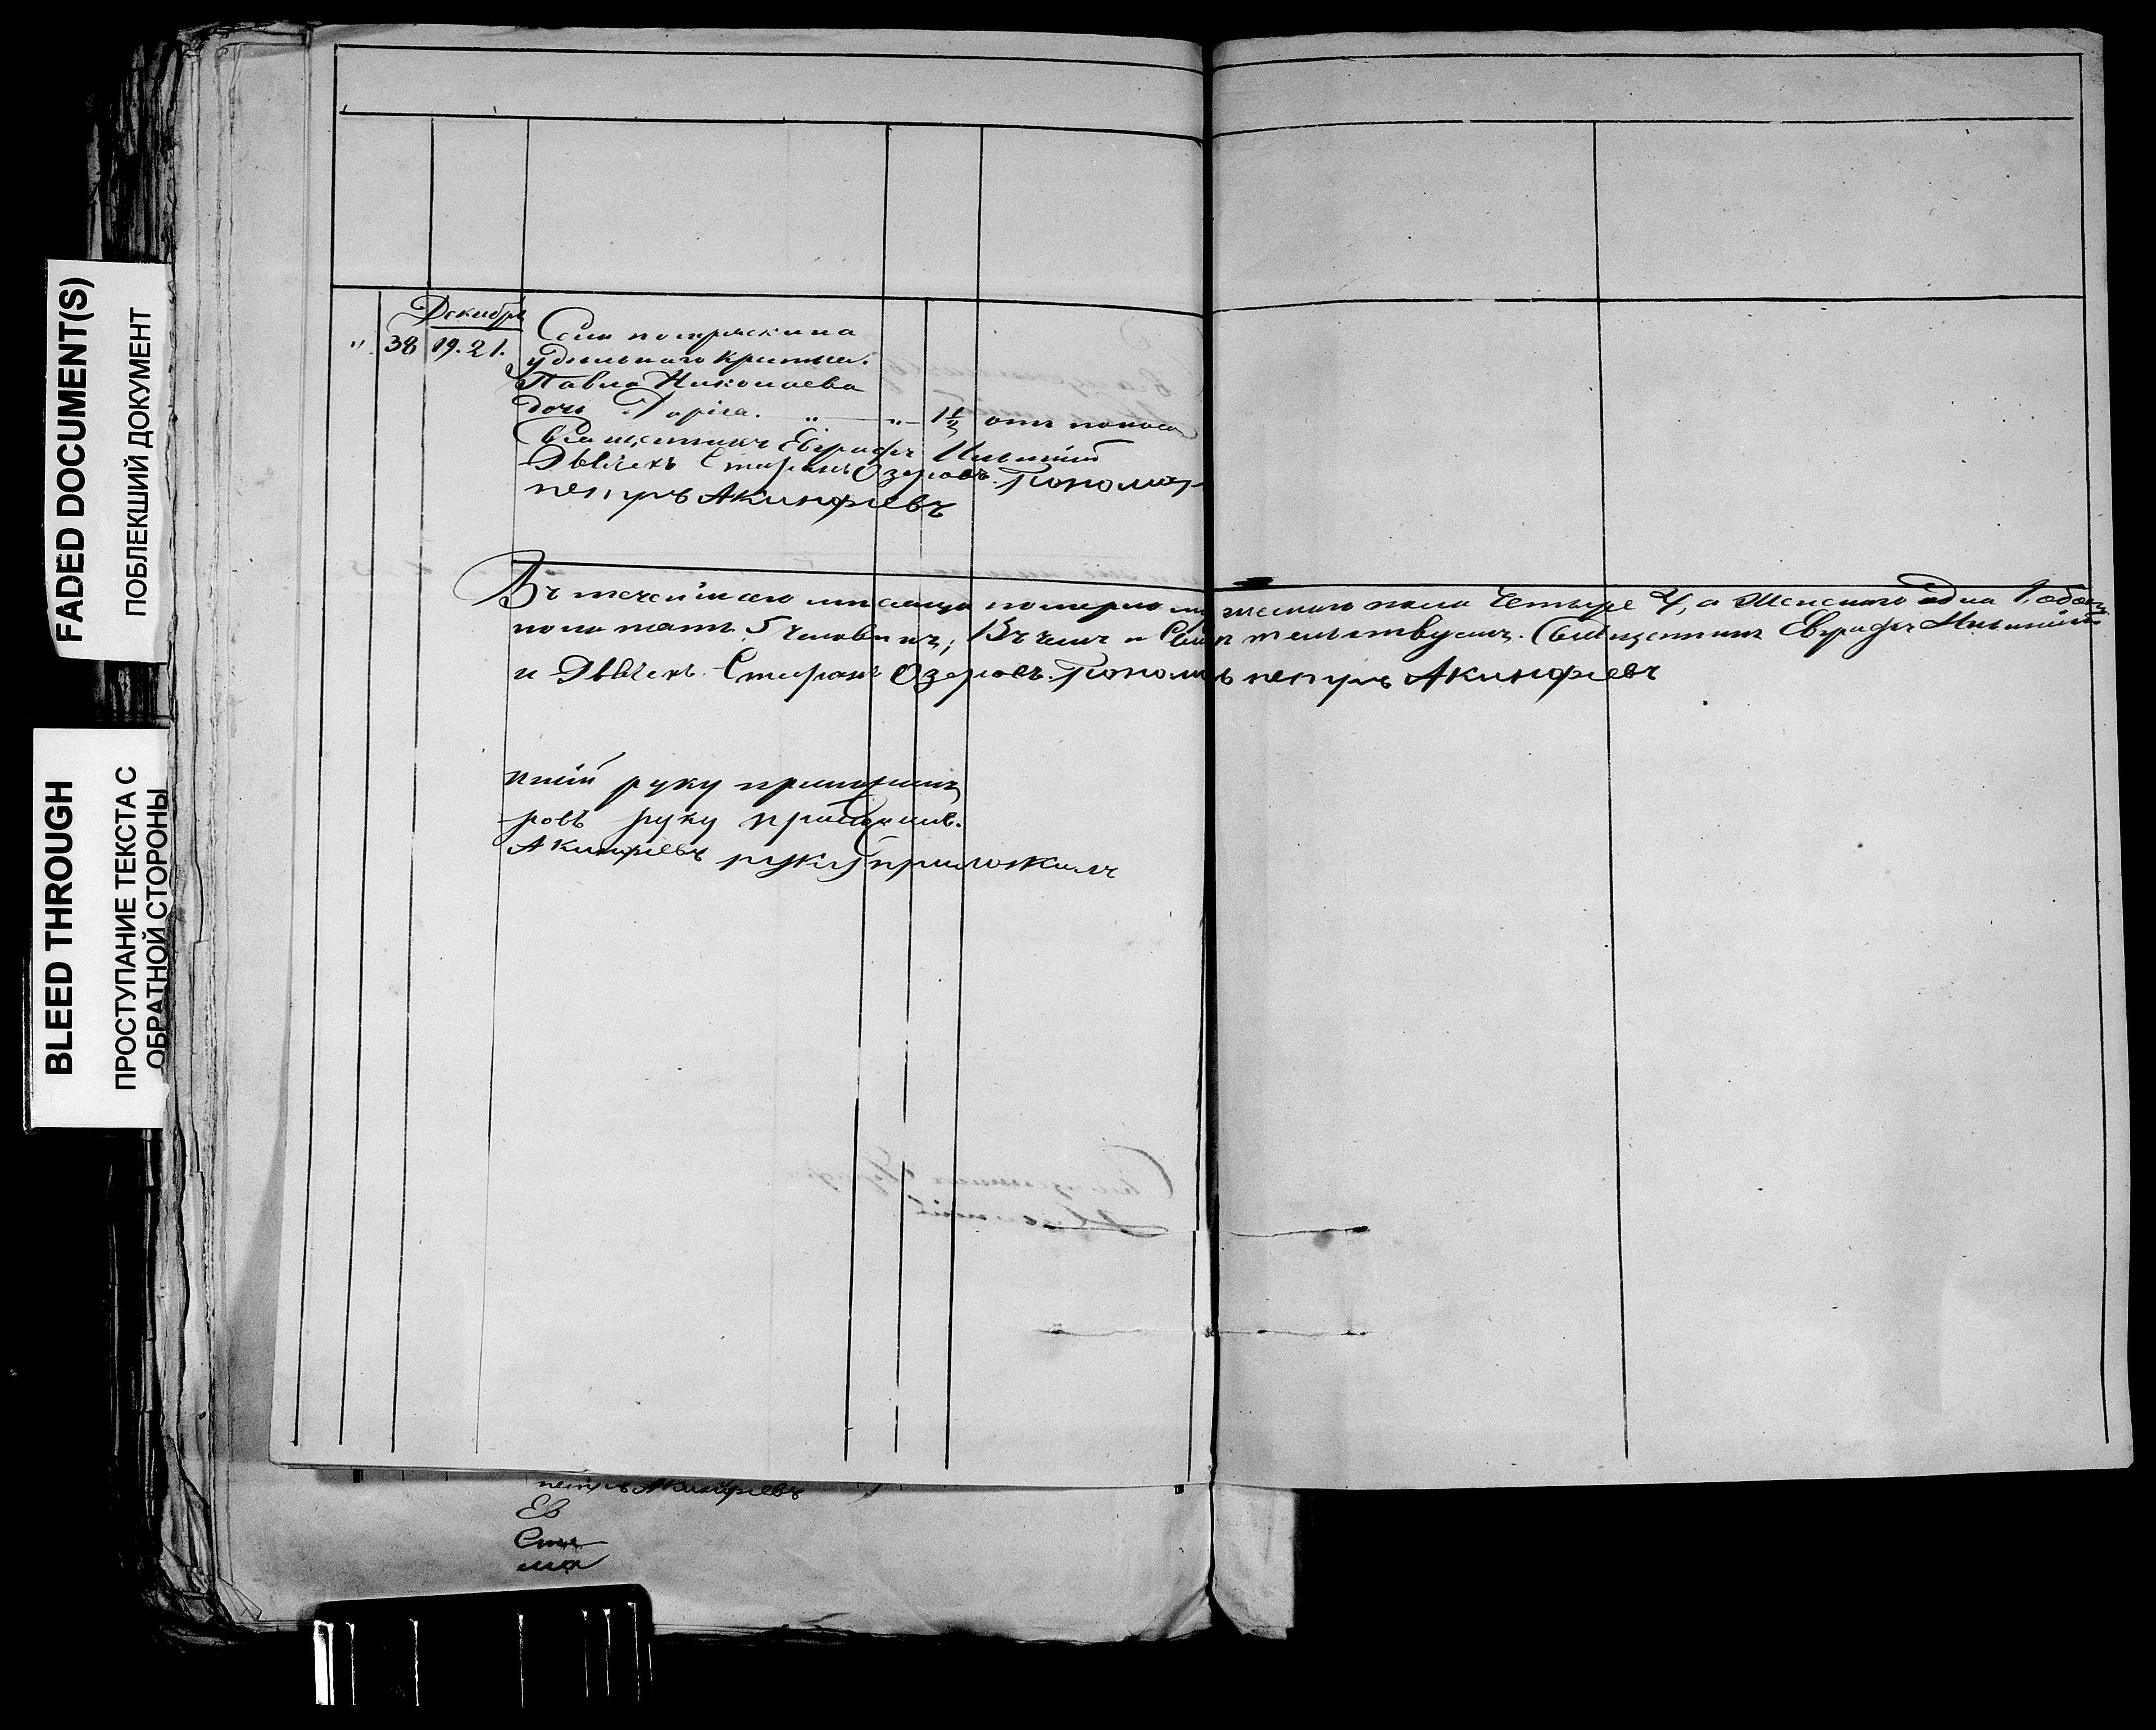 FADED DOCUMENT(S)
ПОБЛЕКШИЙ ДОКУМЕНТ
BLEED THROUGH
ПРОСТУПАНИЕ ТЕКСТА С
ОБРАТНОЙ СТОРОНЫ
Декабрь
" 38 19. 21. Села
удѣльнаго крестья.
Павла Николаева
дочь " " 1½ отъ поноса
Священникъ Евграфъ
Дьячекъ Стефанъ Озеровъ. Пономарь
петръ Акинфіевъ
Въ теченіи сего мѣсяца померло мужескаго пола Четыре 4, а Женскаго одна 1, обоего
пола пять 5 человѣкъ; Въ чемъ и Свидѣтельствуемъ. Священникъ Евграфъ
и Дьячекъ Стефанъ Озеровъ. Пономарь петръ Акинфіевъ
руку приложилъ
ровъ руку приложилъ.
Акинфіевъ руку приложилъ
петръ Акинфіевъ
Ев
Сте